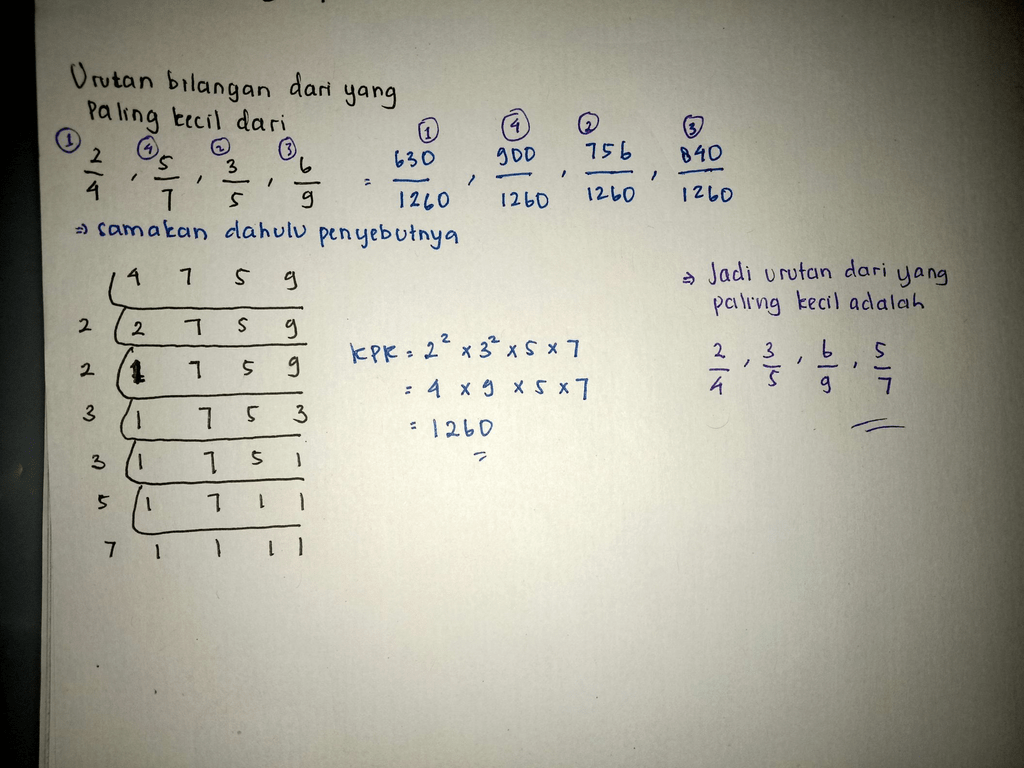 Urutan bilangan dari yang
paling kecil dari
① ④ ② ③ ① ④ ② ③
2/4 , 5/7 , 3/5 , 6/9 = 630/1260 , 900/1260 , 756/1260 , 840/1260
⇒ samakan dahulu penyebutnya
4 7 5 9
2 2 7 5 9
2 1 7 5 9
3 1 7 5 3
3 1 7 5 1
5 1 7 1 1
7 1 1 1 1
KPK = 2² × 3² × 5 × 7
= 4 × 9 × 5 × 7
= 1260
⇒ Jadi urutan dari yang
paling kecil adalah
2/4 , 3/5 , 6/9 , 5/7